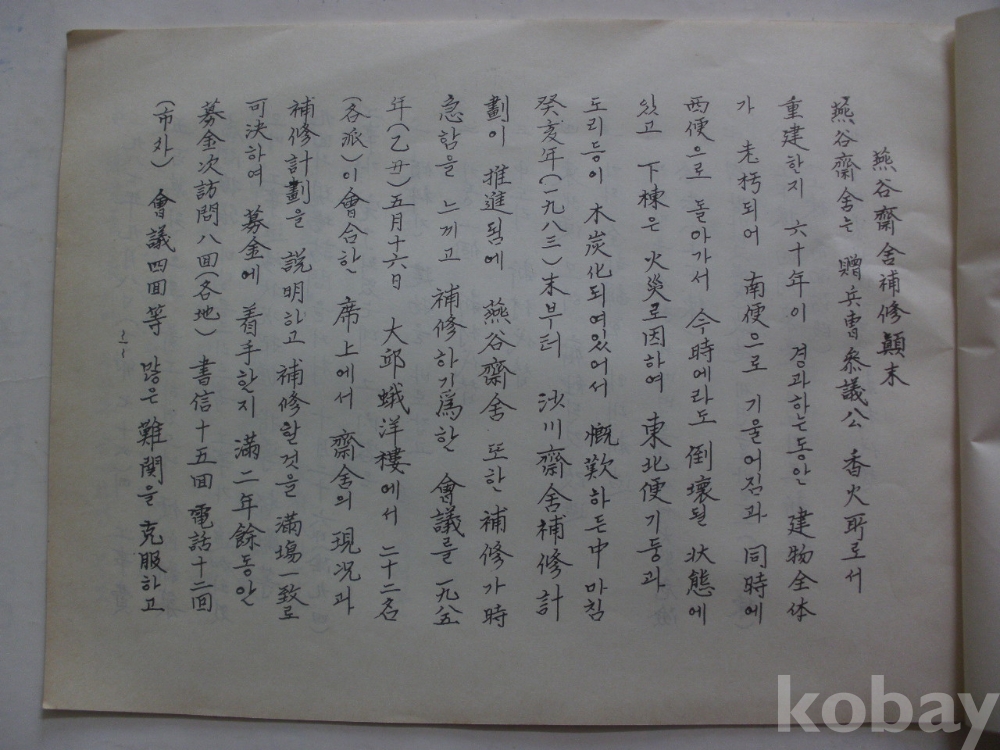 燕谷齋舍補修顚末
燕谷齋舍는 贈兵曹參議公 香火所로서
重建한지 六十年이 경과하는동안 建物全体
가 老朽되어 南便으로 기울어짐과 同時에
西便으로 돌아가서 今時에라도 倒壞될 狀態에
있고 下棟은 火災로因하여 東北便기둥과
도리등이 木炭化되여있어서 慨歎하든中 마침
癸亥年(一九八三)末부터 沙川齋舍補修計
劃이 推進됨에 燕谷齋舍 또한 補修가 時
急함을 느끼고 補修하기爲한 會議를 一九八五
年(乙丑)五月十六日 大邱蛾洋樓에서 二十二名
(各派)이 會合한 席上에서 齋舍의 現況과
補修計劃을 説明하고 補修할것을 滿場一致로
可決하여 募金에 着手한지 滿二年餘동안
募金次訪問八回(各地) 書信十五回 電話十二回
(市外) 會議四回等 많은 難関을 克服하고
-1-
kobay